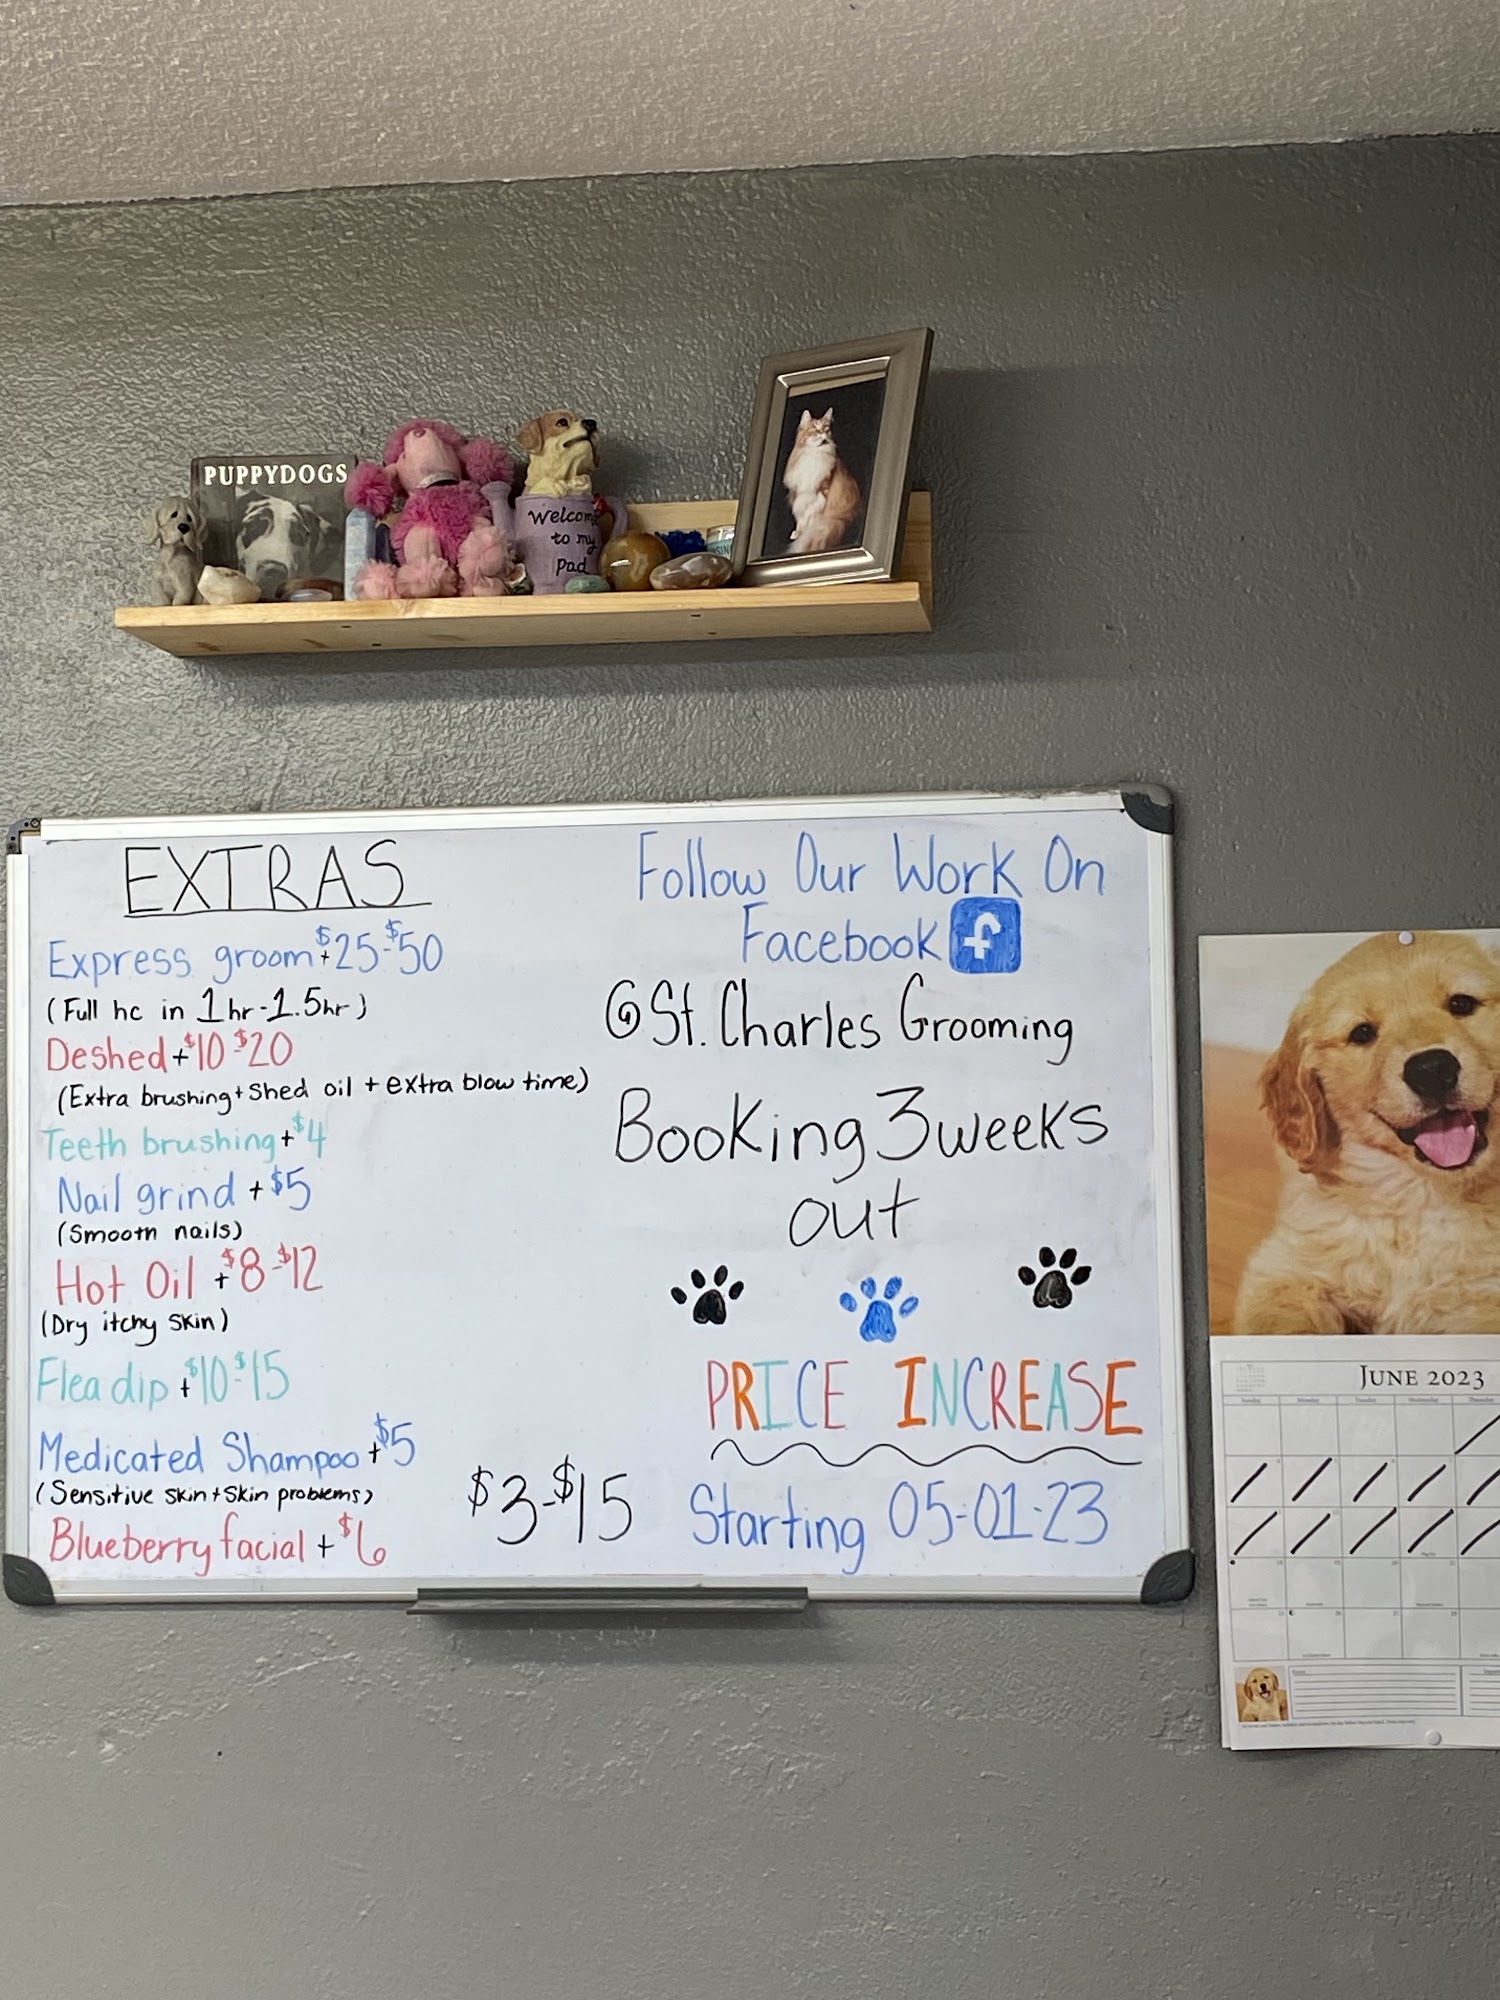 PUPPYDOGS
Welcome
to my
pad
EXTRAS
Express groom + $25-$50
(Full hc in 1hr-1.5hr)
Deshed + $10-$20
(Extra brushing + Shed oil + extra blow time)
Teeth brushing + $4
Nail grind + $5
(Smooth nails)
Hot Oil + $8-$12
(Dry itchy skin)
Flea dip + $10-$15
Medicated Shampoo + $5
(Sensitive skin + skin problems)
Blueberry facial + $6
Follow Our Work On
Facebook f
@St. Charles Grooming
Booking 3 weeks
out
PRICE INCREASE
$3-$15 Starting 05-01-23
JUNE 2023
Sunday Monday Tuesday Wednesday Thursday